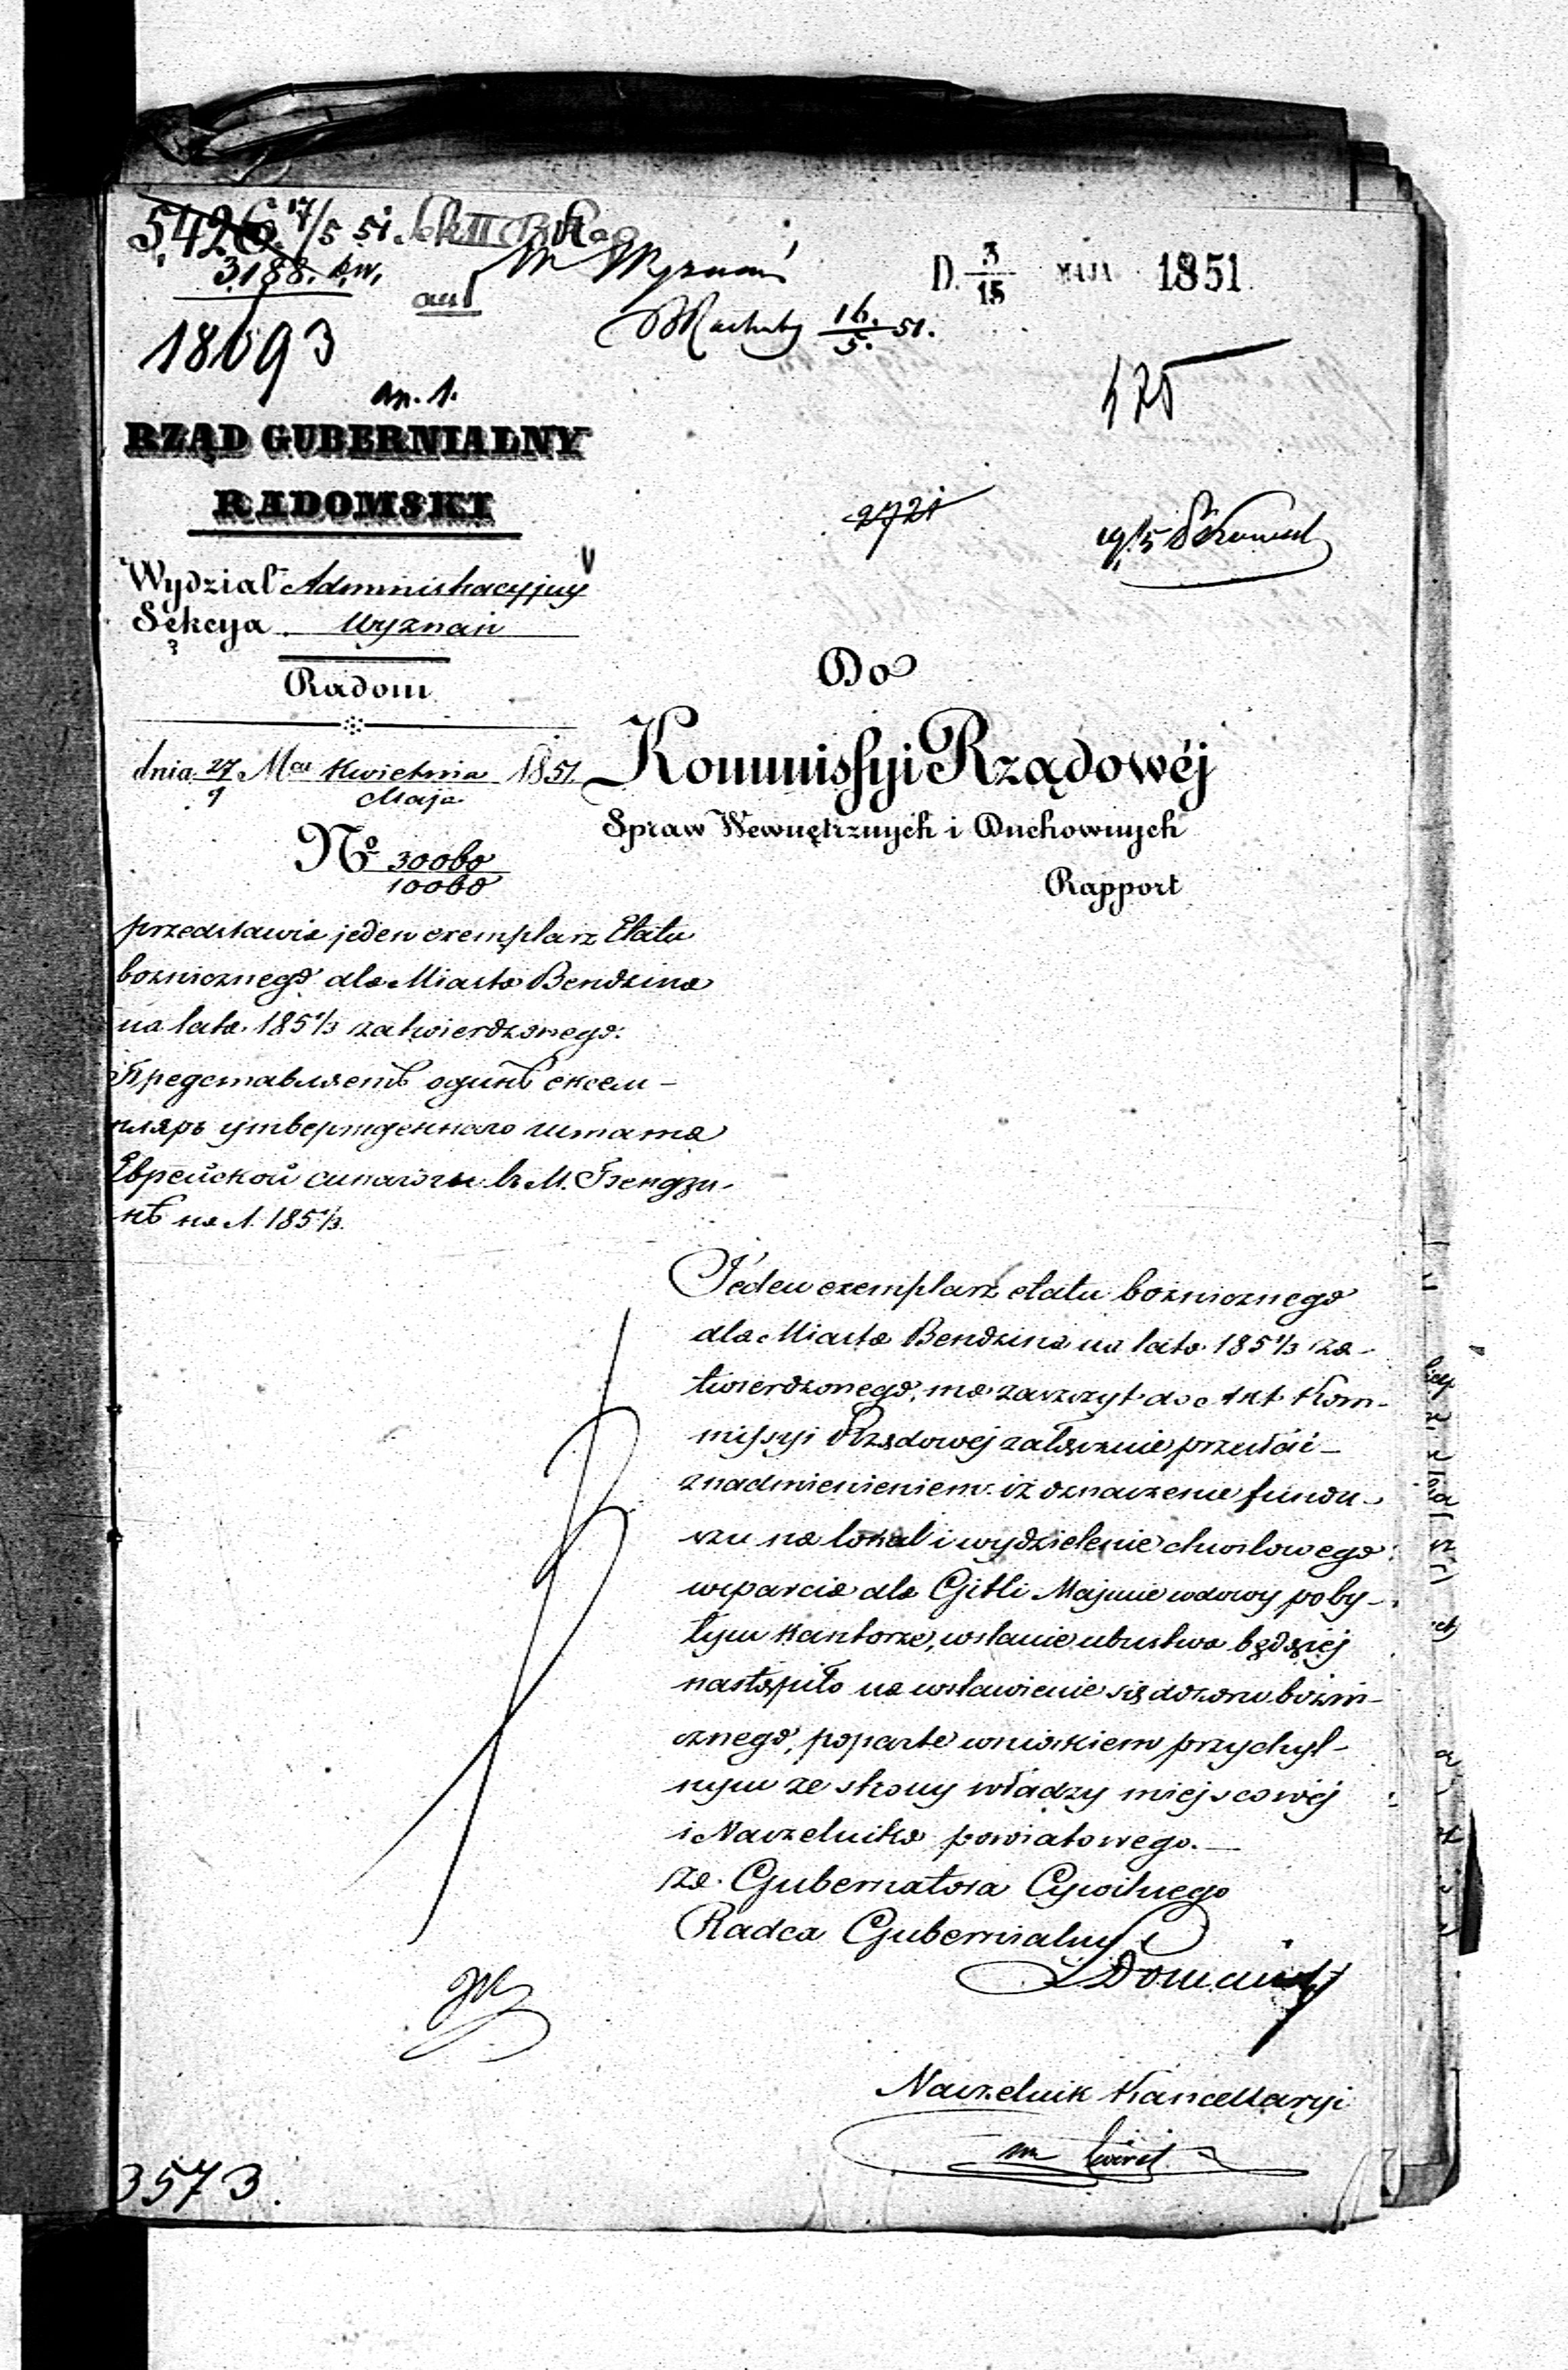 5426. 17/5 51.
3188. kw.
18693
an. 1.
W Wyznań
16./5. 51.
D. 3/15 MAJA 1851
425
RZĄD GUBERNIALNY
RADOMSKI
2721
19/5
Wydział Administracyjny
Sekcya Wyznań
Radom
dnia 27/9 Mca Kwietnia/Maja 1851
No 30060/10060
Do
Kommissyi Rządowéj
Spraw Wewnętrznych i Duchownych
Rapport
przedstawia jeden exemplarz Etatu
bożnicznego dla Miasta Bendzina
na lata 185 1/3 zatwierdzonego.
Представляетъ одинъ ексем-
пляръ утвержденнаго штата
Еврейской синагоги в М. Бендзи-
нѣ на л. 185 1/3.
Jeden exemplarz etatu bożnicznego
dla Miasta Bendzina na lata 185 1/3 za-
twierdzonego, ma zaszczyt do Akt Kom-
missyi Rządowej załącznie przesłać
z nadmienieniem iż oznaczenie fundu-
szu na lokal i wydzielenie chwilowego
wsparcia dla Gitli Majmie wdowy po by-
łym kantorze, w stanie ubustwa będącej
nastąpiło na wstawienie się dozoru bożni-
cznego, poparte wnioskiem przychyl-
nym ze strony władzy miejscowéj
i Naczelnika powiatowego.—
za. Gubernatora Cywilnego
Radca Gubernialny
Naczelnik Kancellaryi
3573.